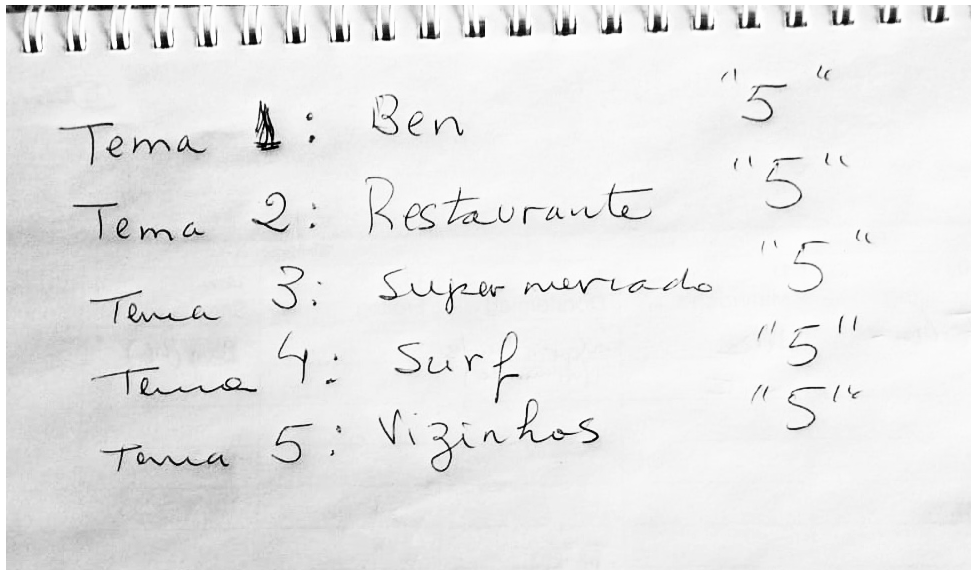 Tema 1: Ben "5"
Tema 2: Restaurante "5"
Tema 3: Supermercado "5"
Tema 4: Surf "5"
Tema 5: Vizinhos "5"